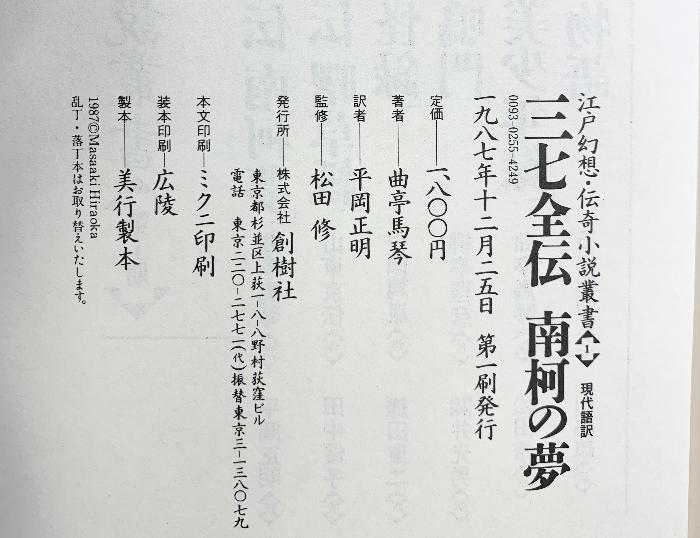 江戸幻想・伝奇小説叢書 1 現代語訳
三七全伝 南柯の夢
0093-0255-4249
一九八七年十二月二五日 第一刷発行
定価――一、八〇〇円
著者――曲亭馬琴
訳者――平岡正明
監修――松田 修
発行所――株式会社 創樹社
東京都杉並区上荻一―八―八野村荻窪ビル
電話 東京二二〇―二七七一(代)振替東京三―一三八〇七九
本文印刷―ミクニ印刷
装本印刷―広陵
製本――美行製本
1987©Masaaki Hiraoka
乱丁・落丁本はお取り替えいたします。